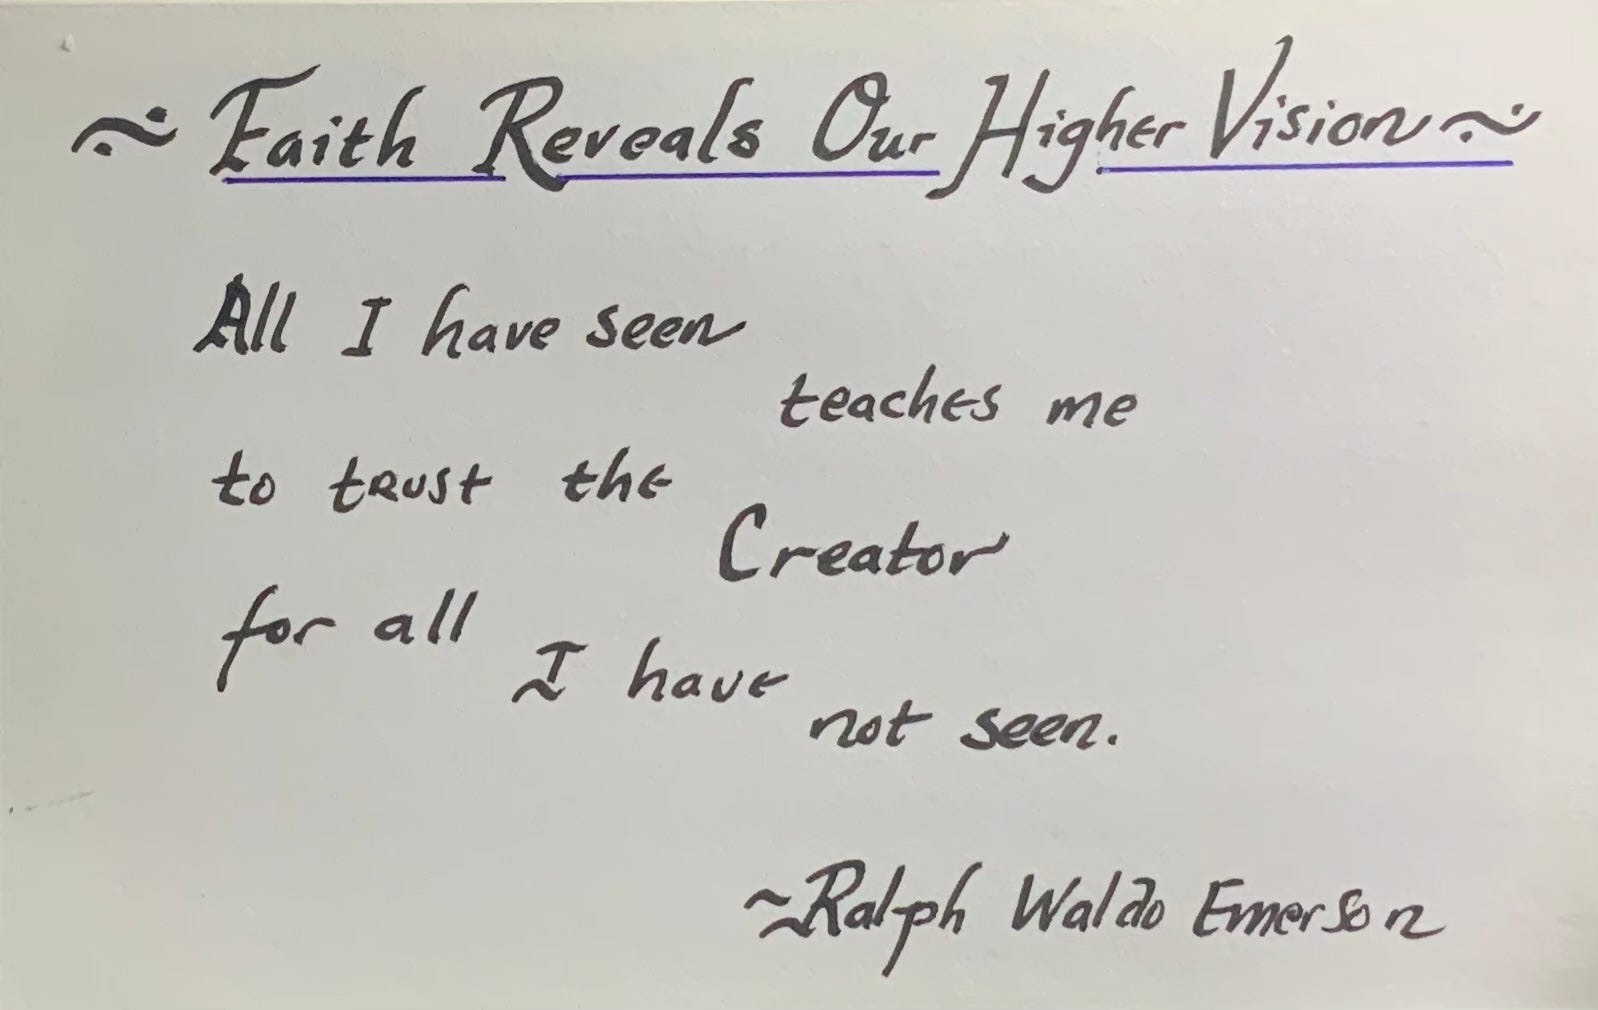 ~ Faith Reveals Our Higher Vision ~
All I have seen
teaches me
to trust the
Creator
for all
I have
not seen.
~Ralph Waldo Emerson